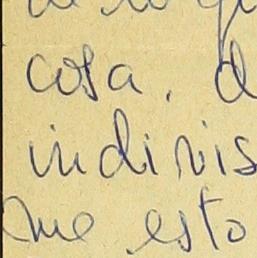 cosa. d
indivis
me esto